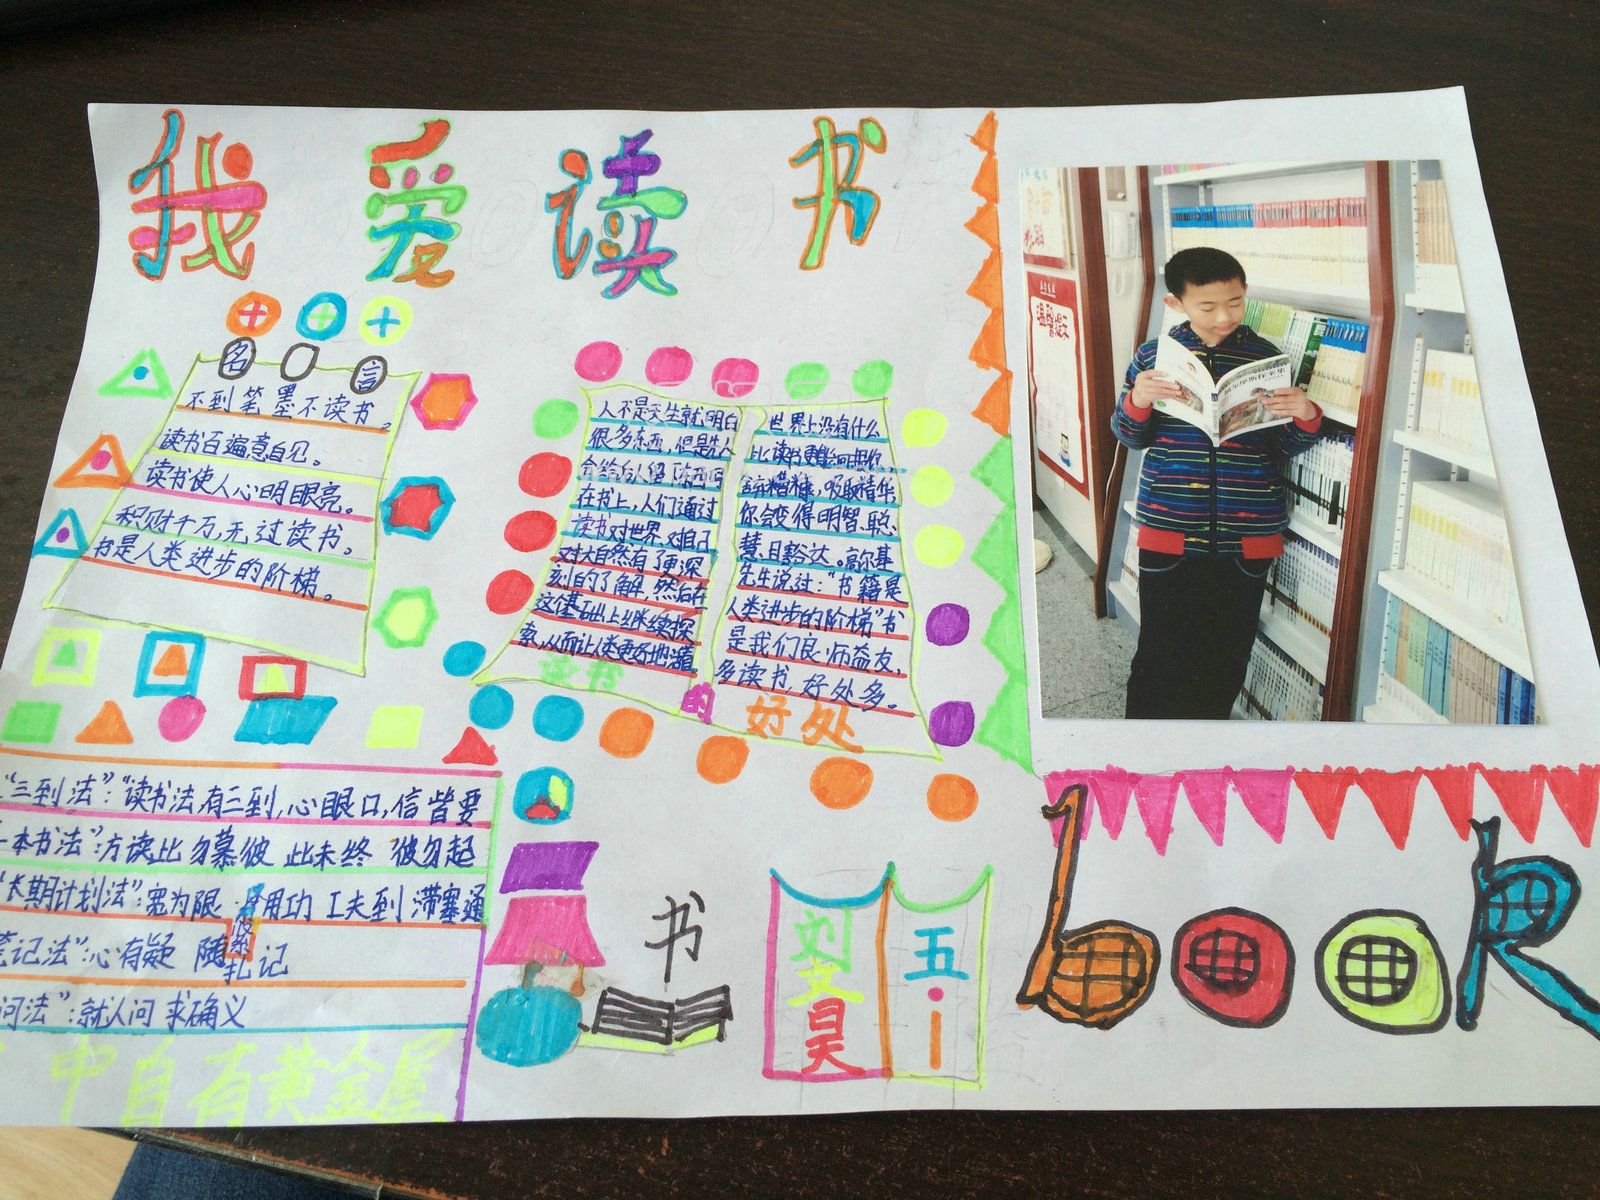 我爱读书
名言
不到笔墨不读书。
读书百遍意自见。
读书使人心明眼亮。
积财千万,无过读书。
书是人类进步的阶梯。
人不是天生就明白
很多东西,但是先人
在书上,人们通过
读书对世界、对自己、
对大自然有了更深
刻的了解,然后在
这个基础上继续探
索,从而让人类更好地
世界上没有什么
比读书更能
糟糠,吸取精华
你会变得明智、聪
慧、豁达。高尔基
先生说过:"书籍是
人类进步的阶梯"书
是我们良师益友,
多读书,好处多。
读书的好处
"三到法":"读书法有三到,心眼口,信皆要
一本书法":方读此 勿慕彼 此未终 彼勿起
"长期计划法":宽为限 紧用功 工夫到 滞塞通
笔记法":心有疑 随札记
问法":就人问 求确义
中自有黄金屋
书
刘文昊
五·一
book
温馨提示